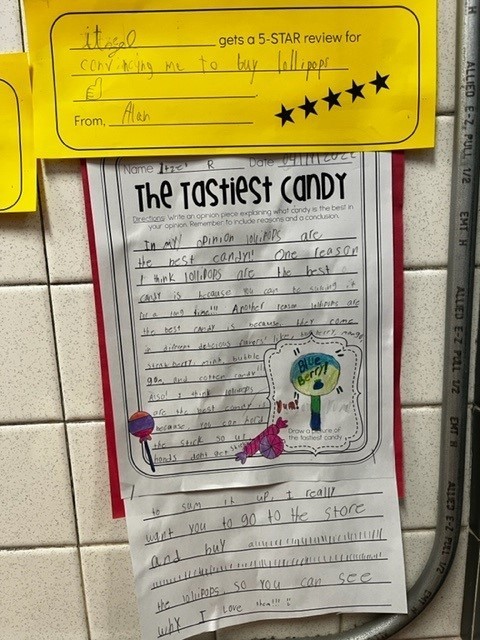 gets a 5-STAR review for
convincing me to buy lollipops
From, Alan
Name R Date
THE TASTIEST CANDY
Directions: Write an opinion piece explaining what candy is the best in
your opinion. Remember to include reasons and a conclusion.
In my opinion lollipops are
the best candy! One reason
I think lollipops are the best
candy is because you can be sucking it
for a long time!!! Another reason lollipops are
the best candy is because they come
in different delicious flavors! like, mango
strawberry, mint, bubble
gum, and cotton candy!!
Also! I think lollipops
are the best candy is
because you can hold
the stick so ur
hands dont get
Blue
Berry!
Yum!
Draw a picture of
the tastiest candy
to sam it up, I really
want you to go to the store
and buy
the lollipops, so you can see
why I love them!!!
ALLIED E-Z PULL 1/2 EMT H
ALLIED E-Z PULL 1/2 EMT H
ALLIED E-Z